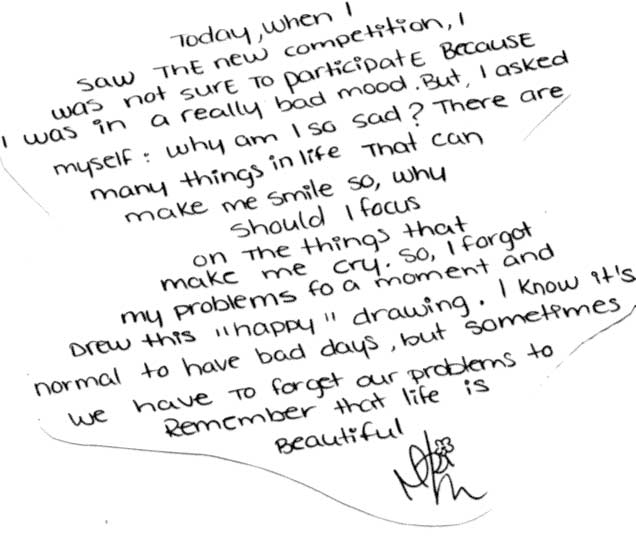 Today, when I
saw The new competition, I
was not sure To participate Because
I was in a really bad mood. But, I asked
myself: why am I so sad? There are
many things in life That can
make me smile so, why
should I focus
on The things that
make me cry. So, I forgot
my problems fo a moment and
Drew this "happy" drawing. I know it's
normal to have bad days, but sometimes
we have To forget our problems to
Remember that life is
Beautiful